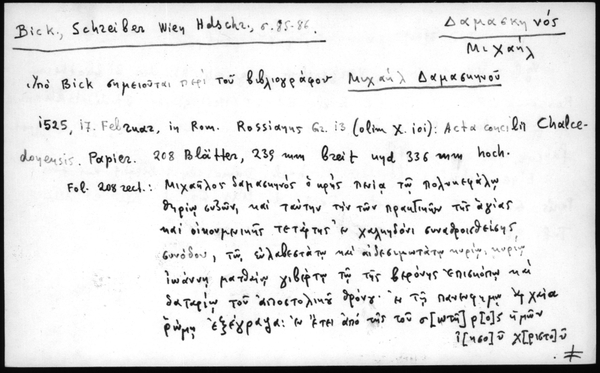 Bick., Schreiber Wien Hdschr., σ. 85-86.
Δαμασκηνός
Μιχαήλ
Ὑπὸ Bick σημειοῦται περὶ τοῦ βιβλιογράφου Μιχαήλ Δαμασκηνοῦ
1525, 17. Februar, in Rom. Rossianus Gr. 13 (olim X. 101): Acta concilii Chalce-
donensis. Papier. 208 Blätter, 239 mm breit und 336 mm hoch.
Fol. 208 rect.: Μιχαῆλος δαμασκηνὸς ὁ κρὴς πενία τῷ πολυκεφάλῳ
θηρίῳ συζῶν, καὶ ταύτην τὴν τῶν πρακτικῶν τῆς ἁγίας
καὶ οἰκουμενικῆς τετάρτης ἐν χαλκηδόνι συναθροισθείσης
συνόδου, τῷ εὐλαβεστάτῳ καὶ αἰδεσιμωτάτῳ κυρίῳ, κυρίῳ
ἰωάννῃ ματθαίῳ γιβέρτῳ τῷ τῆς βερόνης ἐπισκόπῳ καὶ
δαταρίῳ τοῦ ἀποστολικοῦ θρόνου· ἐν τῇ πανευφήμῳ
ῥώμῃ ἐξέγραψα: ἐν ἔτει ἀπὸ τῆς τοῦ σ[ωτῆ]ρ[ο]ς ἡμῶν
ἰ[ησο]ῦ χ[ριστο]ῦ